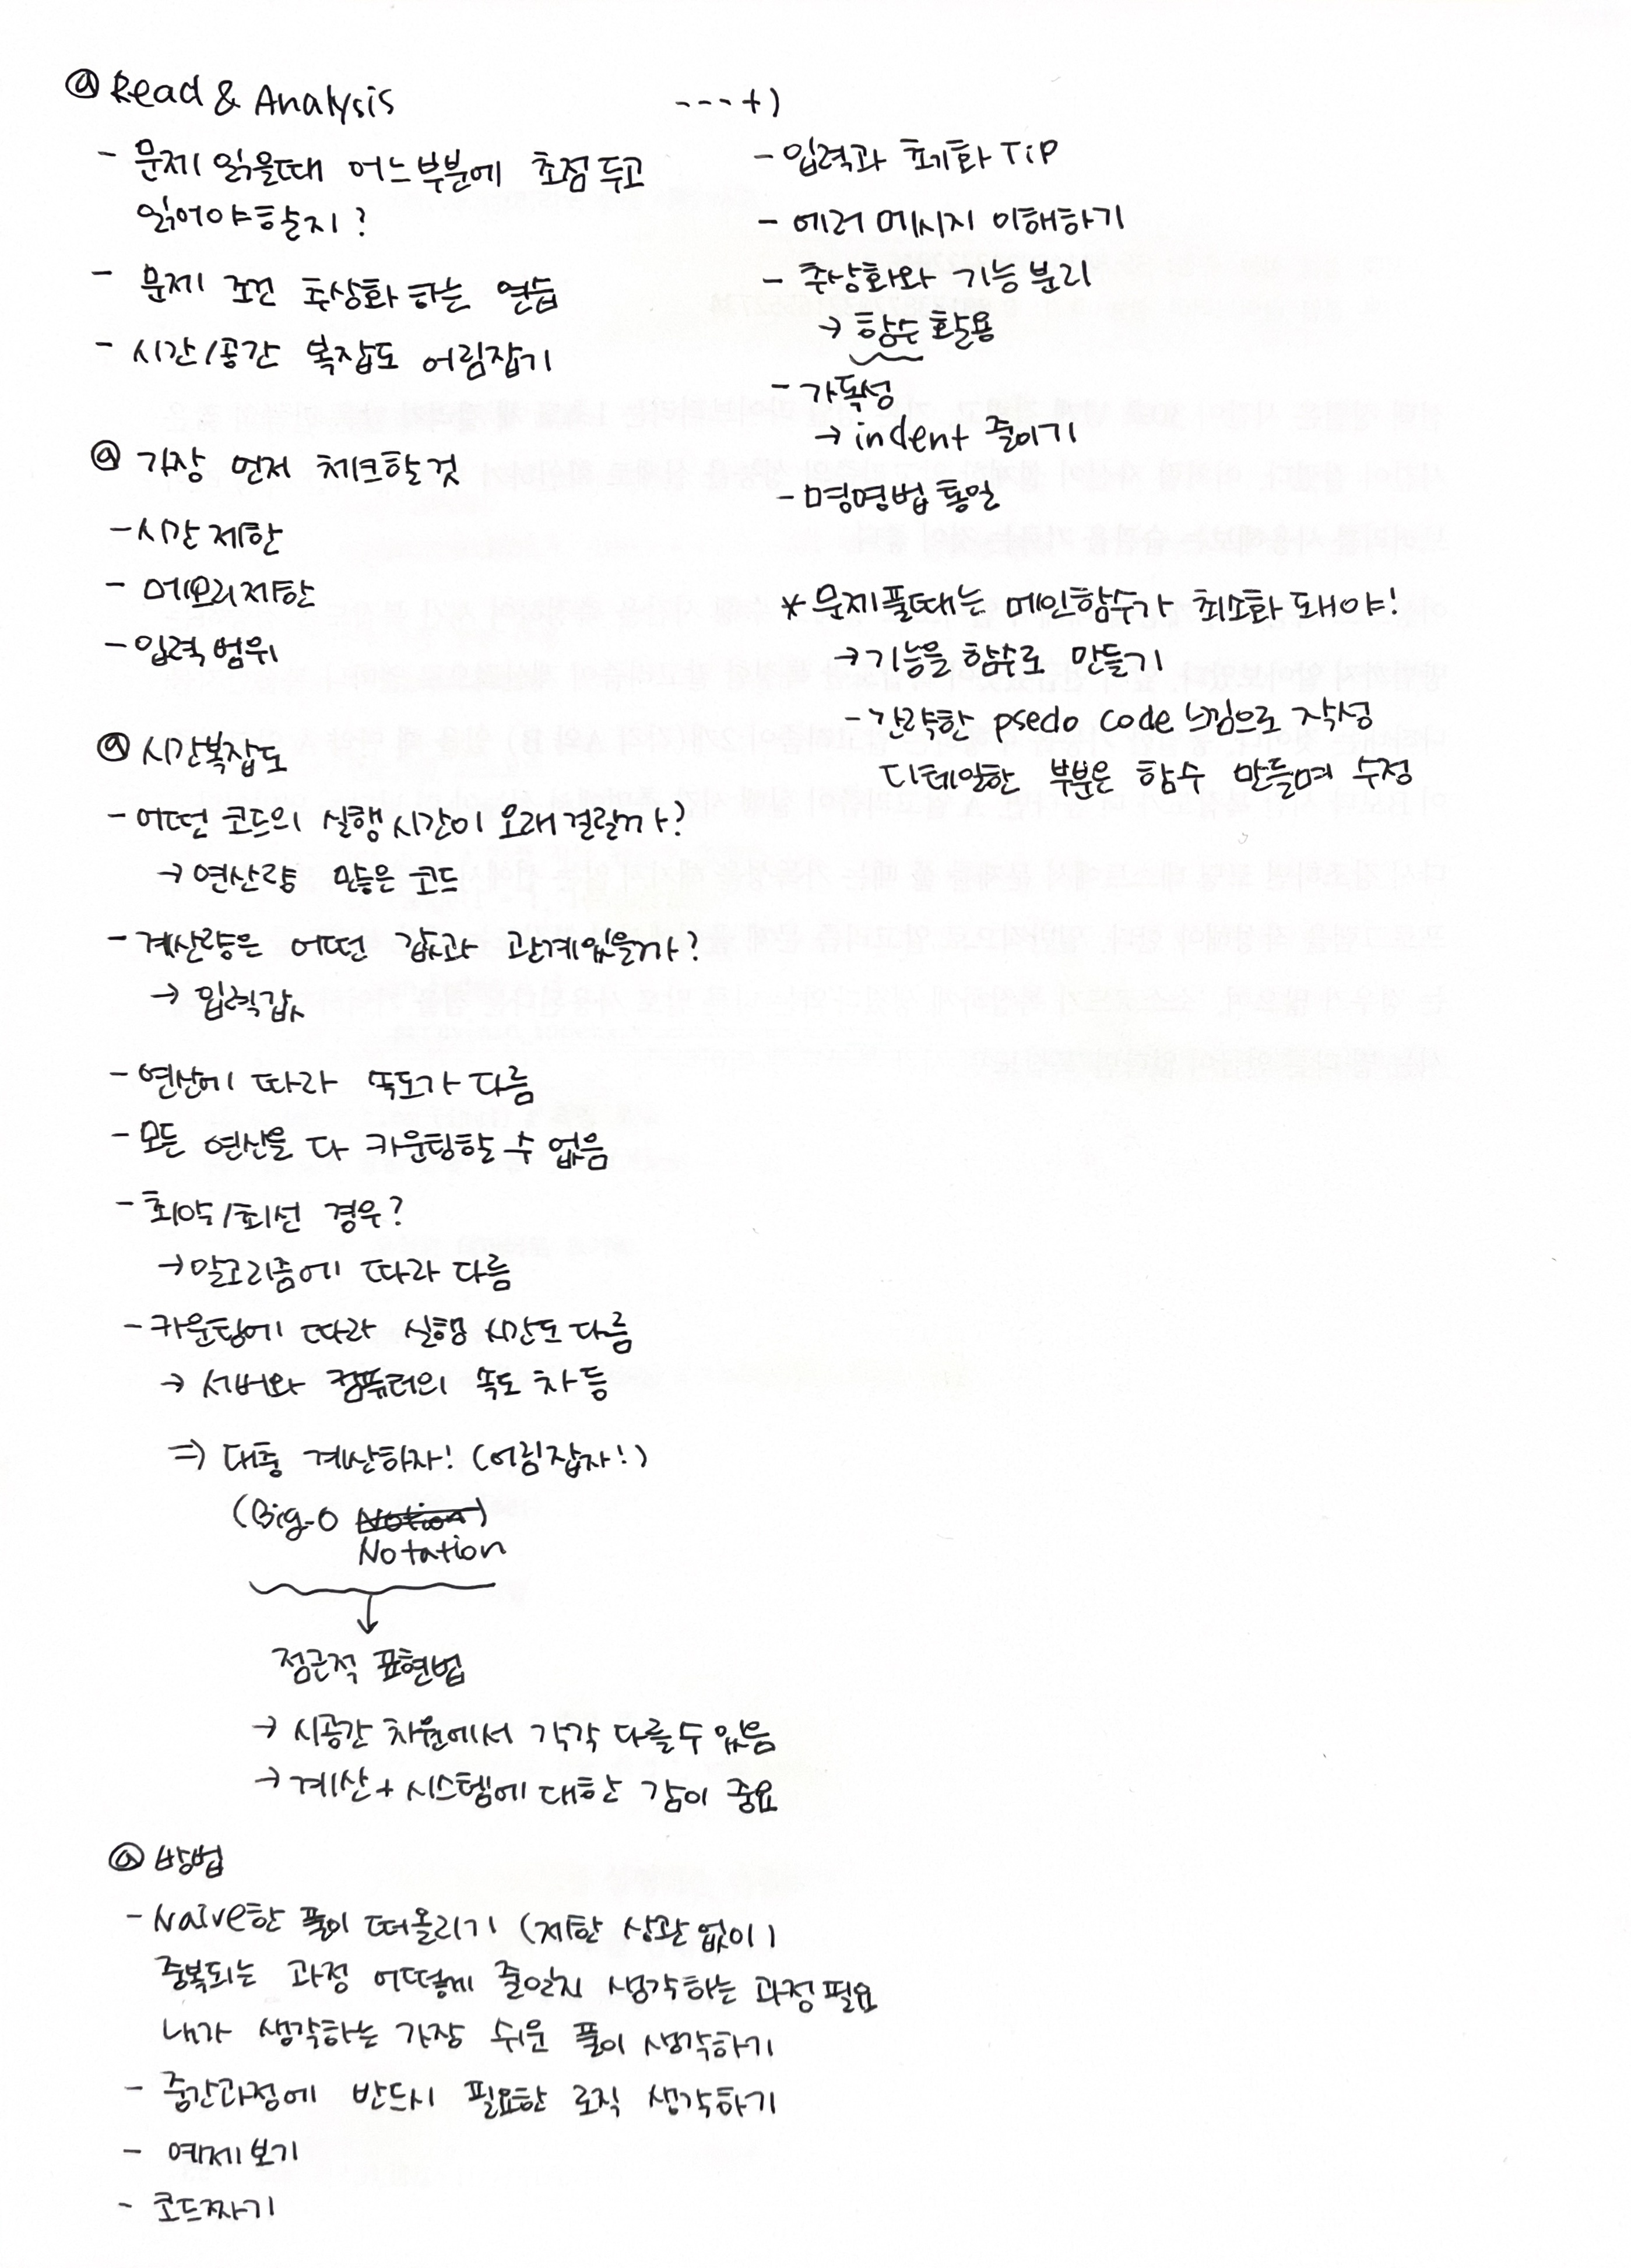 @ Read & Analysis
- 문제 읽을때 어느부분에 초점 두고
읽어야할지?
- 문제 조건 추상화 하는 연습
- 시간/공간 복잡도 어림잡기
@ 가장 먼저 체크할것
- 시간 제한
- 메모리제한
- 입력범위
@ 시간복잡도
- 어떤 코드의 실행시간이 오래걸릴까?
→ 연산량 많은 코드
- 계산량은 어떤 값과 관계있을까?
→ 입력값
- 연산에 따라 속도가 다름
- 모든 연산을 다 카운팅할 수 없음
- 최악/최선 경우?
→ 알고리즘에 따라 다름
- 카운팅에 따라 실행 시간도 다름
→ 서버와 컴퓨터의 속도 차 등
⇒ 대충 계산하자! (어림잡자!)
(Big-O Notion)
Notation
↓
점근적 표현법
→ 시공간 차원에서 각각 다를수 있음
→ 계산 + 시스템에 대한 감이 중요
@ 방법
- Naive한 풀이 떠올리기 (제한 상관 없이)
중복되는 과정 어떻게 줄일지 생각하는 과정필요
내가 생각하는 가장 쉬운 풀이 생각하기
- 중간과정에 반드시 필요한 로직 생각하기
- 예제보기
- 코드짜기
---+)
- 입력과 초기화 TiP
- 에러 메시지 이해하기
- 추상화와 기능 분리
→ 함수 활용
- 가독성
→ indent 줄이기
- 명명법 통일
* 문제풀때는 메인함수가 최소화 돼야!
→ 기능을 함수로 만들기
- 간략한 psedo code 느낌으로 작성
디테일한 부분은 함수 만들며 수정